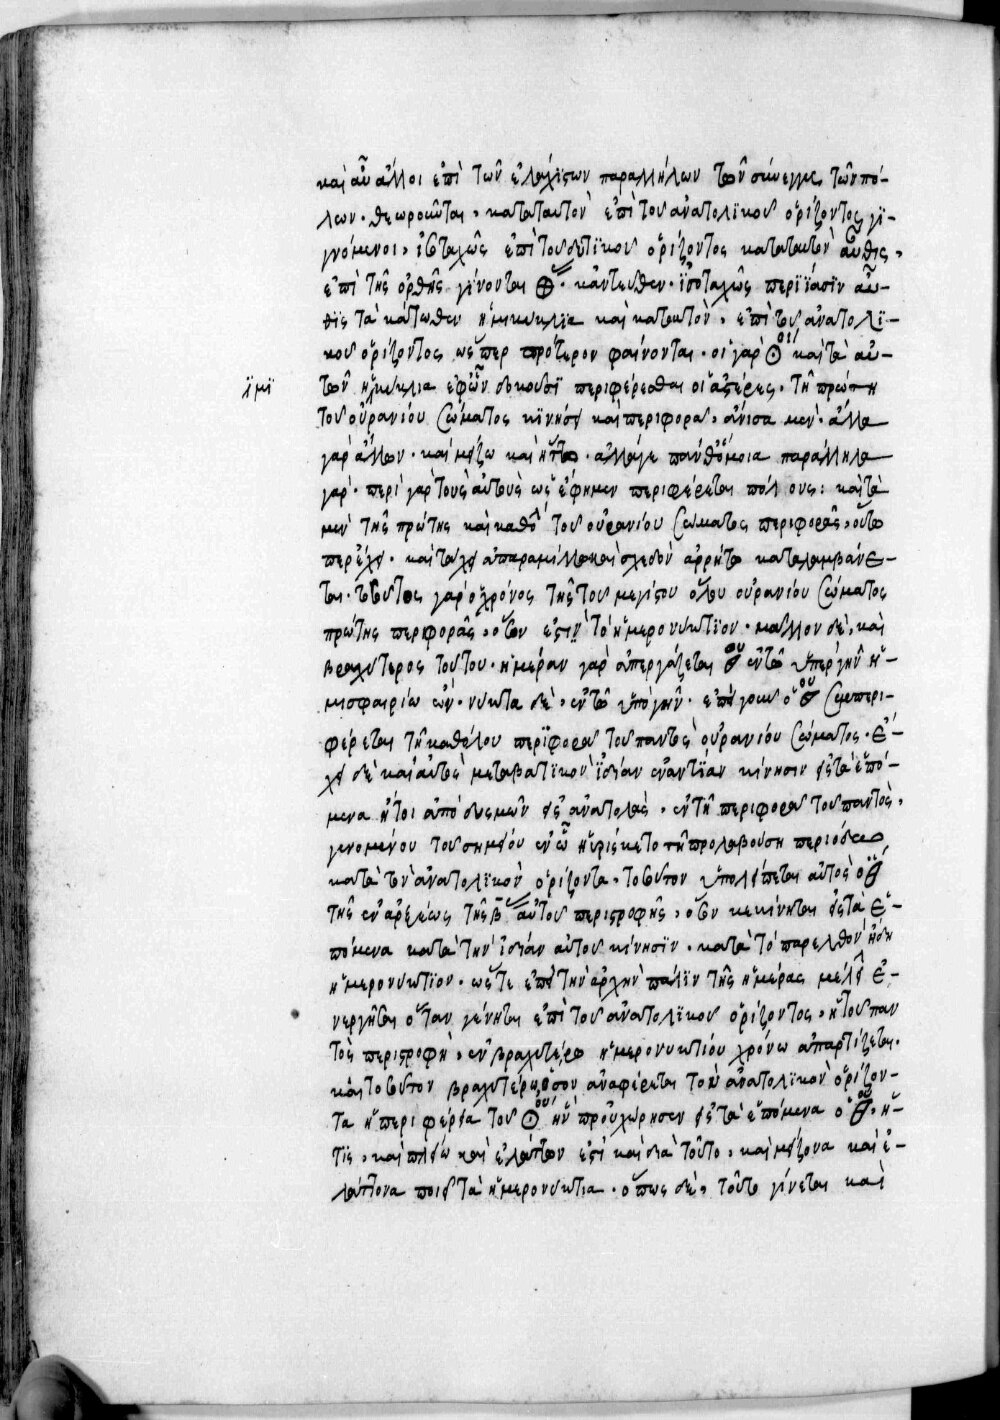 καὶ αὖ ἄλλοι ἐπὶ τῶν ἐλαχίστων παραλλήλων τῶν σύνεγγυς τῶν πό-
λων. θεωροῦνται, κατὰ ταυτὸν ἐπὶ τοῦ ἀνατολϊκοῦ ὁρίζοντος γϊ-
γνόμενοι, ἰσταχῶς ἐπὶ τοῦ δυτϊκοῦ ὁρίζοντος κατὰ ταυτὸν αὖθις,
ἐπὶ τῆς ὀρθῆς γίνονται ⊕. κἀντεῦθεν. ἰσοταχῶς περιΐασϊν αὖ-
θϊς τὰ κάτωθεν ἡμικύκλια καὶ κατ αυτὸν, ἐπὶ τοῦ ἀνατολϊ-
κοῦ ὁρίζοντος ὥσπερ πρότερον φαίνονται. οἱ γὰρ ☉ καὶ τὰ αὐ-
τῶν κύκλια ἐφ' ὧν δοκοῦσϊ περιφέρεσθαι οἱ ἀστέρες. τῇ πρώτῃ
ϊμϊ
τοῦ οὐρανίου σώματος κϊνήσει καὶ περιφορᾷ, ἄνισα μὲν. ἄλλα
γὰρ ἄλλων. καὶ μείζω καὶ ἥττω. ἀλλάγε πάνθ' ὅμοια παράλληλα
γάρ. περὶ γὰρ τοὺς αὐτοὺς ὡς ἔφημεν περιφέρεται πόλους: καὶ τὰ
μὲν τῆς πρώτης καὶ καθόλου τοῦ οὐρανίου σώματος περιφορᾶς, οὕτω
περέχει. καὶ τάχει ἀπαραμίλλω καὶ σχεδὸν ἀρρήτω καταλαμβάνε-
ται. τοσοῦτος γὰρ ὁ χρόνος τῆς τοῦ μεγίστου ὅλου οὐρανίου σώματος
πρώτης περιφορᾶς, ὅσον ἐστὶν τὸ ἡμερονύκτϊον. μᾶλλον δὲ, καὶ
βραχύτερος τούτου. ἡμέραν γὰρ ἀπεργάζεται ἐν τῶ ὑπὲρ γῆν ἡ-
μισφαιρίω ὤν. νύκτα δὲ, ἐν τῶ ὑπὸ γῆν. ἐπεὶ γοῦν ὁ συμπερι-
φέρεται τῇ καθόλου περϊφορᾷ τοῦ παντὸς οὐρανίου σώματος. ἔ-
χει δὲ καὶ αὐτὸς μεταβατϊκὸν ϊδίαν ἐναντίαν κίνησιν εἰς τὰ ἑπό-
μενα ἤτοι ἀπὸ δυσμῶν εἰς ἀνατολὰς, ἐν τῇ περιφορᾷ τοῦ παντὸς,
γενομένου τοῦ σημείου ἐν ὧ ηὑρίσκετο τῇ προλαβούση περιόδω
κατὰ τὸν ἀνατολϊκὸν ὁρίζοντα. τοσοῦτον ὑπολείπεται αὐτὸς ὁ
τῆς ἐνάρξεως τῆς β αὐτοῦ περιστροφῆς, ὅσον κεκίνηται εἰς τὰ ἑ-
πόμενα κατὰ τὴν ἰδίαν αὐτοῦ κίνησϊν. κατὰ τὸ παρελθὸν ἤδη
ἡμερονύκτϊον. ὥστε ἐπεὶ τὴν ἀρχὴν πάλϊν τῆς ἡμέρας μέλλει ἐ-
νεργῆσαι ὅταν γένηται ἐπὶ τοῦ ἀνατολϊκοῦ ὁρίζοντος, ἡ τοῦ παν
τὸς περιστροφὴ, ἐν βραχυτέρω ἡμερονυκτίου χρόνω ἀπαρτίζεται.
καὶ τοσοῦτον βραχυτέρω, ὅσον ἀναφέρεται τὸν ἀνατολϊκὸν ὁρίζον-
τα ἡ περιφέρεια τοῦ ☉ ἣν προὐχώρησεν εἰς τὰ ἑπόμενα ὁ, ἥ-
τϊς, καὶ πλείω καὶ ἐλάττων ἐστὶ καὶ διὰ τοῦτο, καὶ μείζονα καὶ ἐ-
λάττονα ποιεῖ τὰ ἡμερονύκτια. ὅπως δὲ, τοῦτο γίνεται καὶ